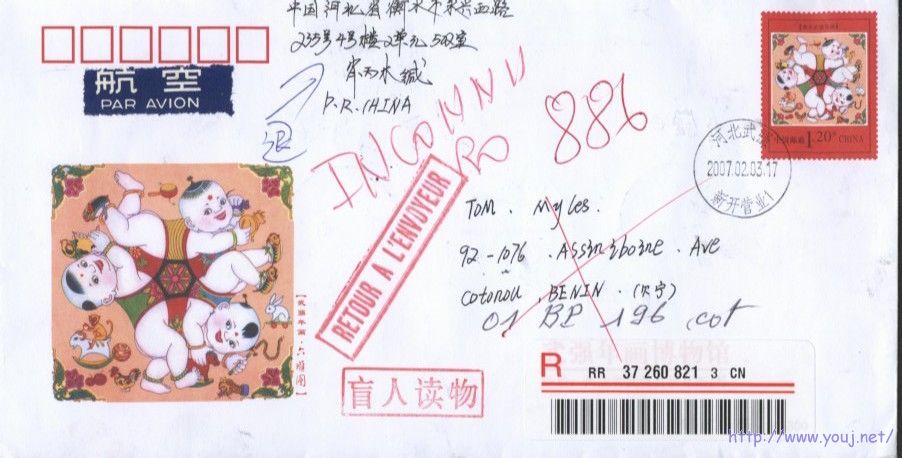 中国河北省衡水市永兴西路
235号4号楼2单元502室
P.R. CHINA
航空
PAR AVION
退
INCONNU
886
RETOUR A L'ENVOYEUR
中国邮政 1.20元 CHINA
河北武强
2007.02.03.17
新开营业1
TOM. Myles.
92-1076 . Assiniboine . Ave
Cotonou . BENIN . (贝宁)
01 BP 196 cot
武强年画博物馆
【武强年画·六子争头】
盲人读物
R RR 37 260 821 3 CN
http://www.youj.net/